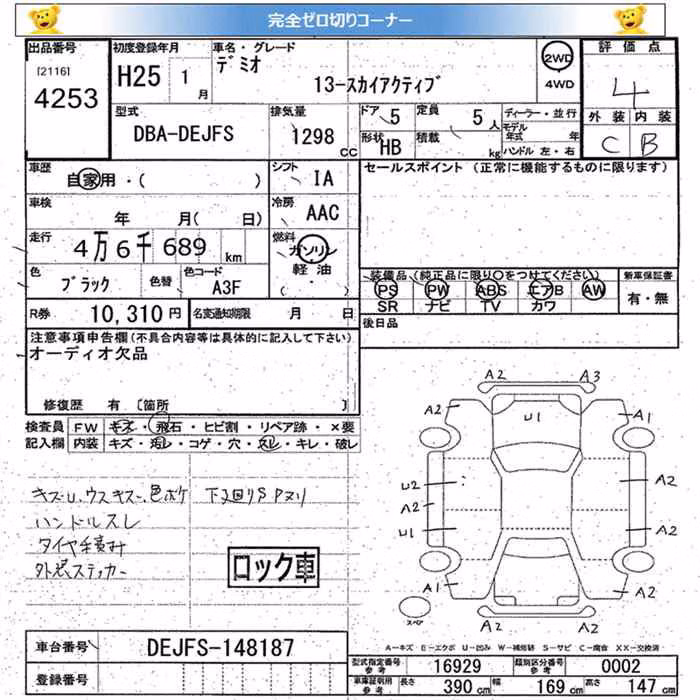 完全ゼロ切りコーナー
出品番号
[2116]
4253
初度登録年月
H25 1月
車名・グレード
デミオ
13-スカイアクティブ
2WD
4WD
評価点
4
外装 内装
C B
型式
DBA-DEJFS
排気量
1298 CC
ドア 5
定員 5人
形状 HB
積載 kg
ディーラー・並行
モデル年式 年
ハンドル 左・右
車歴
自家用・( )
シフト IA
車検
年 月( 日)
冷房 AAC
走行
4万6千689km
燃料
ガソリン
軽油
( ・ )
色
ブラック
色替
色コード
A3F
セールスポイント (正常に機能するものに限ります)
装備品(純正品に限り○をつけてください)
PS PW ABS エアB AW
SR ナビ TV カワ
新車保証書
有・無
後日品
R券 10,310円
名変通知期限 月 日
注意事項申告欄(不具合内容等は具体的に記入して下さい)
オーディオ欠品
修復歴 有 〔箇所 〕
検査員記入欄
FW キズ・飛石・ヒビ割・リペア跡・×要
内装 キズ・汚レ・コゲ・穴・スレ・キレ・破レ
キズU、ウスキズ、色ボケ 下回りS
ハンドルスレ
タイヤ
外装ステッカー
ロック車
A2 A3
A2 U1 A1
U2 A2
A2
U1 A2
A1 A2
A2
スペア
A-キズ E-エクボ U-凹み W-補修跡 S-サビ C-腐食 XX-交換済
車台番号 DEJFS-148187
登録番号
型式指定番号参考 16929
類別区分番号参考 0002
車庫証明用参考 長さ 390cm 幅 169cm 高さ 147cm